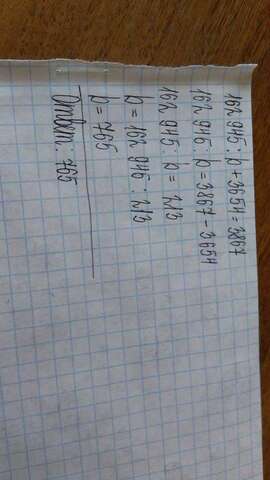 162 945 : p + 3654 = 3867
162 945 : p = 3867 - 3654
162 945 : p = 213
p = 162 945 : 213
p = 765
Ответ: 765